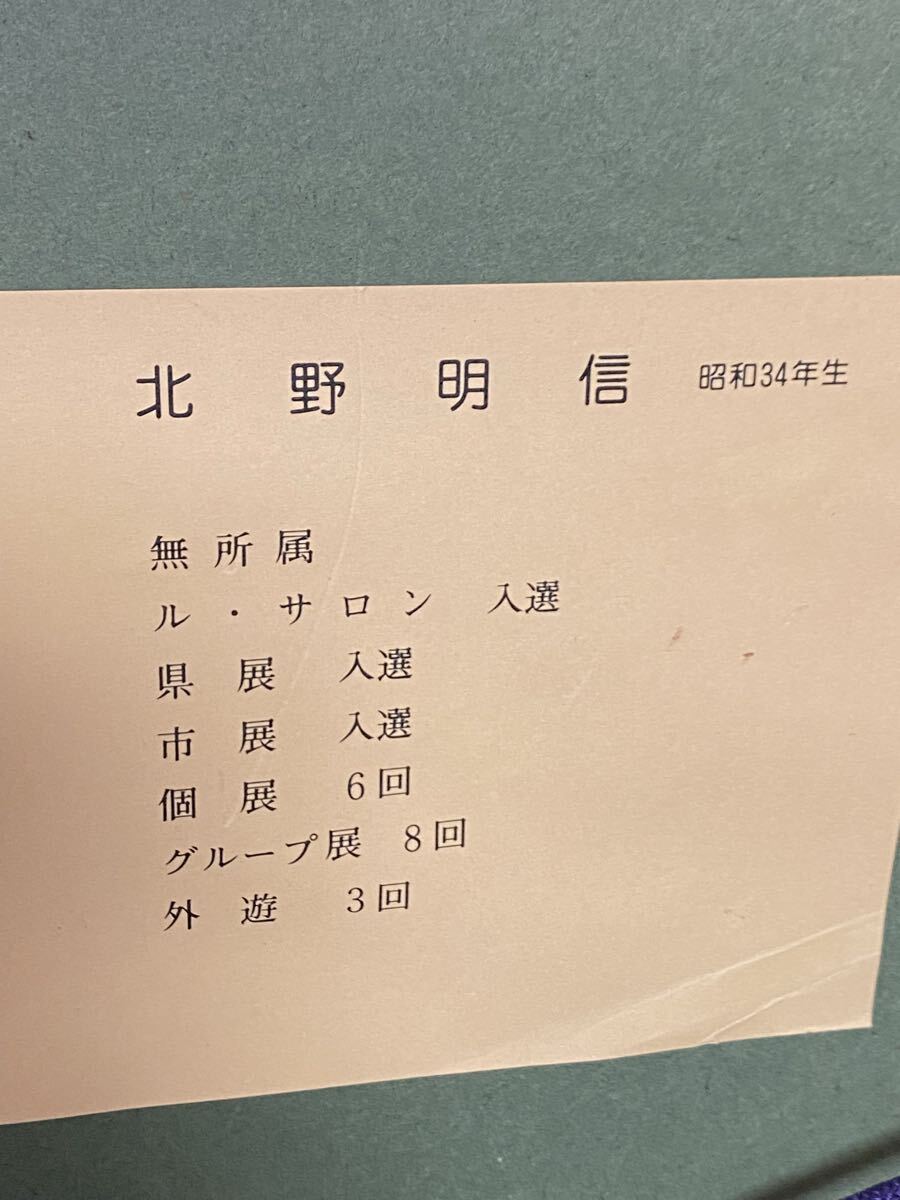 北野明信 昭和34年生
無所属
ル・サロン 入選
県展 入選
市展 入選
個展 6回
グループ展 8回
外遊 3回